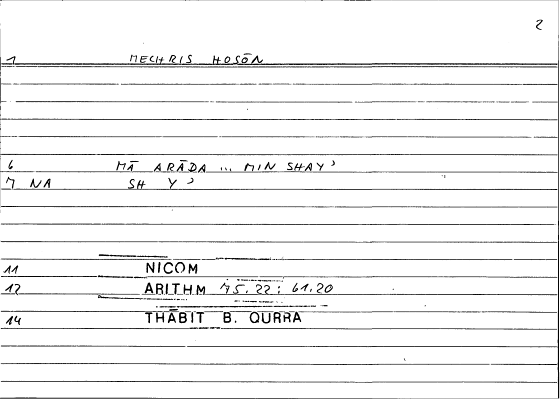 2
1 MECHRIS HOSŌN
6 MĀ ARĀDA ... MIN SHAYʾ
7 NA SH Y ʾ
11 NICOM
12 ARITHM 75.22; 61.20
14 THĀBIT B. QURRA